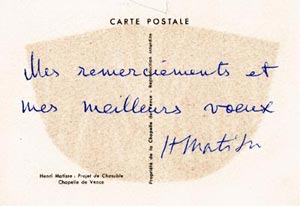 CARTE POSTALE
Mes remerciements et
mes meilleurs voeux
H Matisse
Henri Matisse - Projet de Chasuble
Chapelle de Vence
Propriété de la Chapelle de Vence - Reproduction interdite